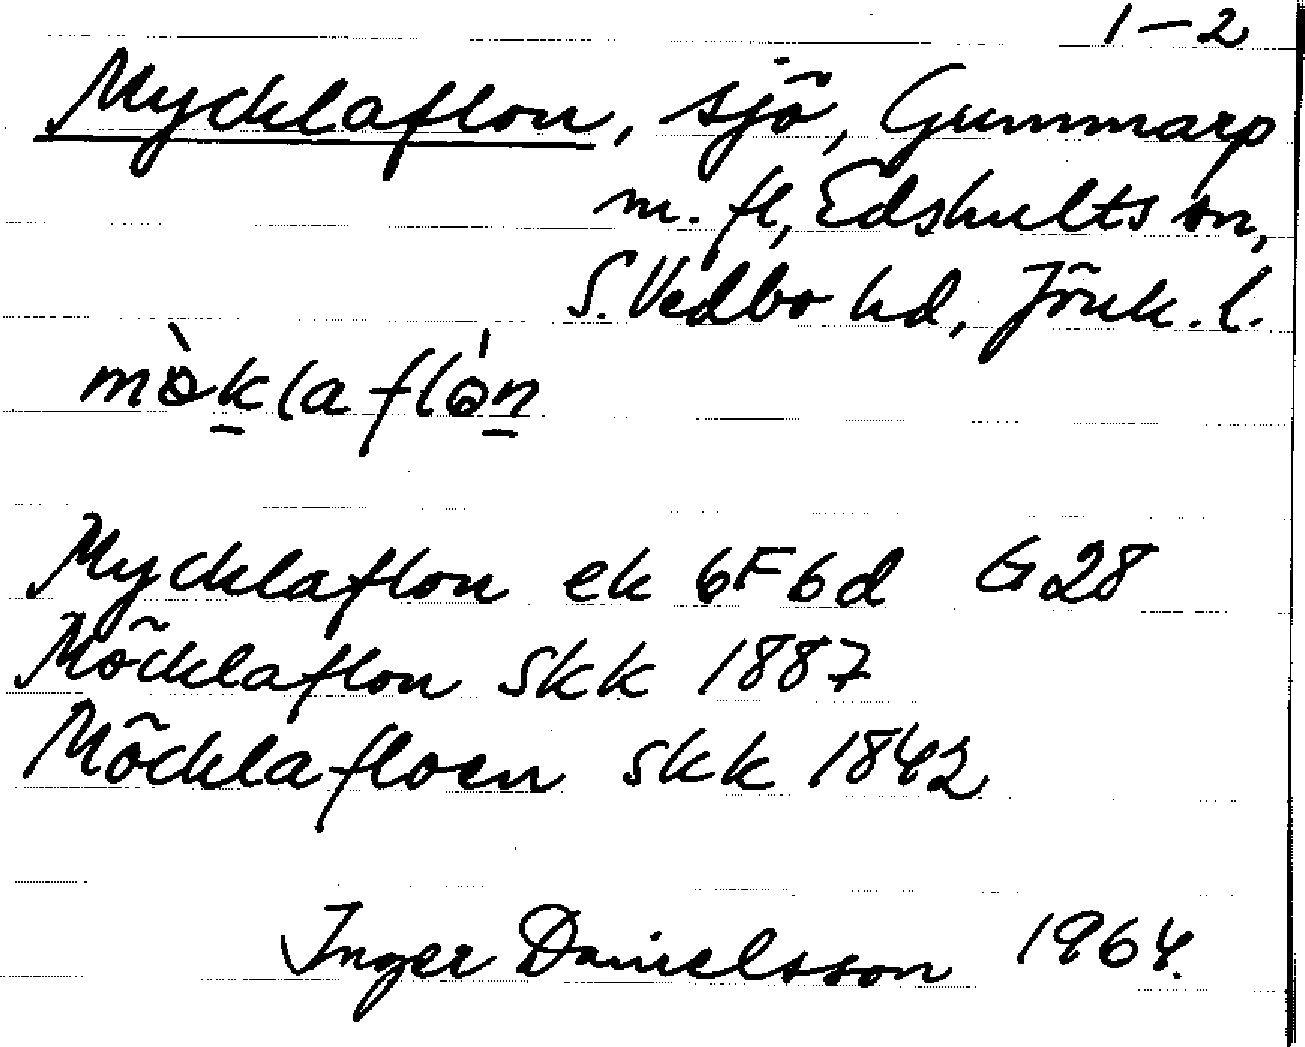 1-2
Mycklaflon, sjö, Gummarp
m. fl., Edshults sn,
S. Vedbo hd, Jönk. l.
Mycklaflon ek 6F6d G28
Möcklaflon skk 1887
Möcklafloen skk 1842
Inger Danielsson 1964.